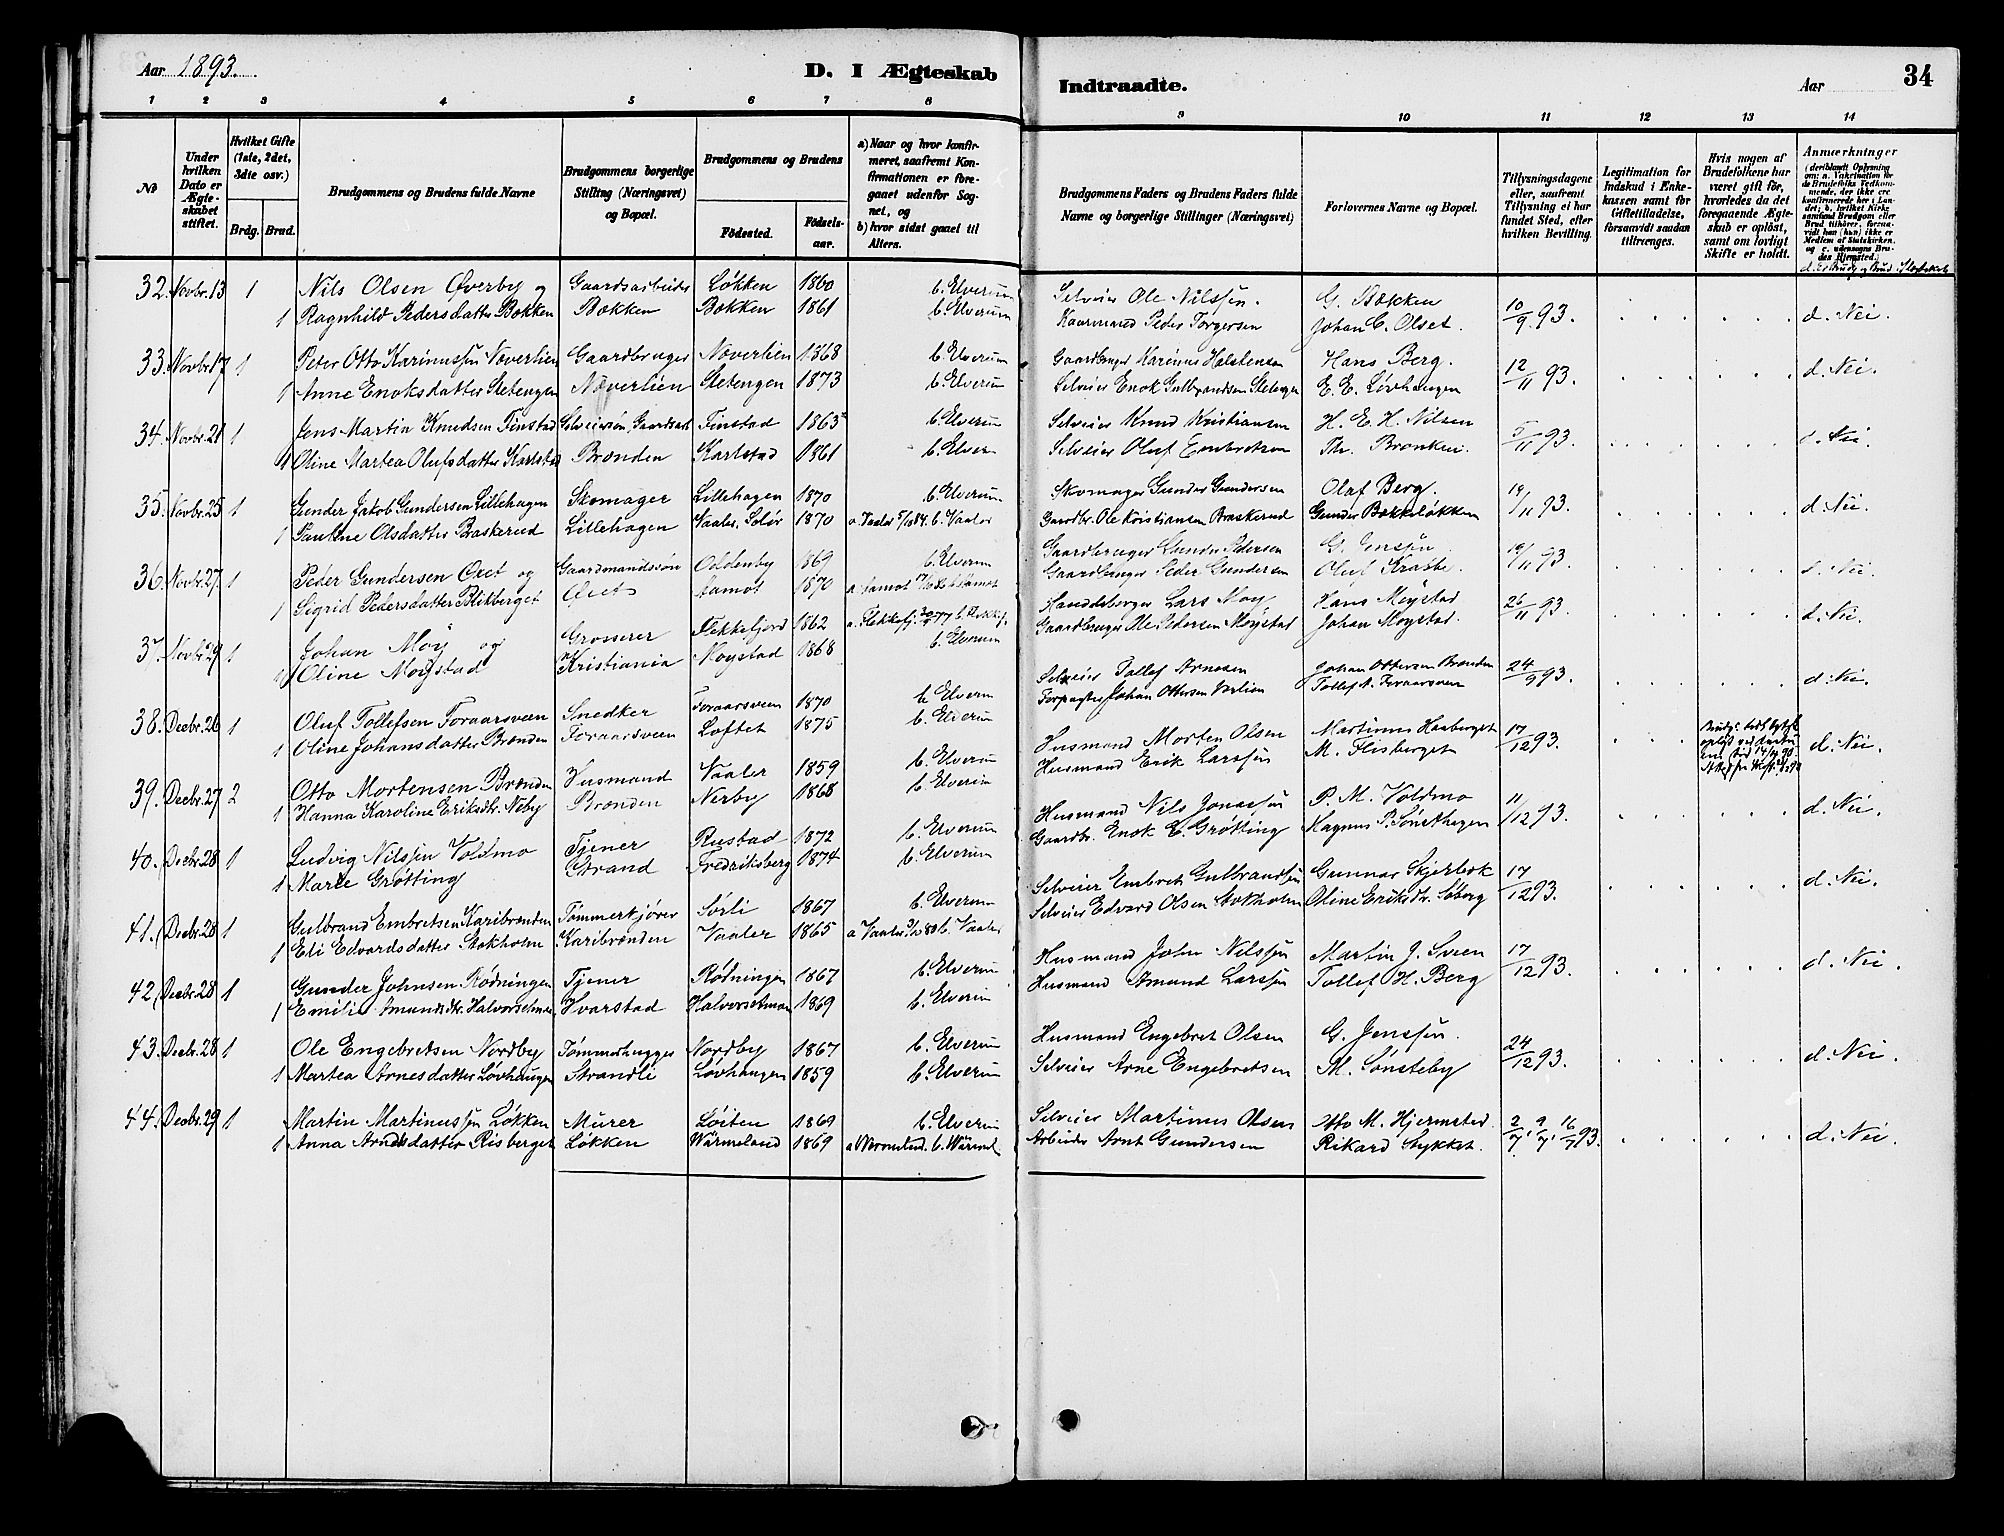 Aar 1893.
D. I Ægteskab
Indtraadte.
Aar
34
1 2 3 4 5 6 7 8 9 10 11 12 13 14
No
Under hvilken Dato er Ægteskabet stiftet.
Hvilket Gifte (1ste, 2det, 3die osv.)
Brdg. Brud.
Brudgommens og Brudens fulde Navne
Brudgommens borgerlige Stilling (Næringsvei) og Bopæl.
Brudgommens og Brudens
Födested.
Födselsaar.
a) Naar og hvor konfirmeret, saafremt Konfirmationen er foregaaet udenfor Sognet, og
b) hvor sidst gaaet til Alters.
Brudgommens Faders og Brudens Faders fulde Navne og borgerlige Stillinger (Næringsvei)
Forlovernes Navne og Bopæl.
Tillysningsdagene eller, saafremt Tillysning ei har fundet Sted, efter hvilken Bevilling.
Legitimation for Indskud i Enkekassen samt for Giftetilladelse, forsaavidt saadan tiltrænges.
Hvis nogen af Brudefolkene har været gift för, hvorledes da det foregaaende Ægteskab er oplöst, samt om lovligt Skifte er holdt.
Anmærkninger
32. Novbr. 13 1 Nils Olsen Øverby og Gaardsarbeider Løkken 1860 b. Elverum Selveier Ole Nilssøn. G. Bækken 10/9 93. d. Nei.
1 Ragnhild Pedersdatter Bækken Bækken Bækken 1861 b. Elverum Kaarmand Peder Torgersen Johan C. Olset.
33. Novbr. 17 1 Peter Otto Karinussøn Nøverlien Gaardbruger Nøverlien 1868 b. Elverum Gaardbruger Karinus Halstensen Hans Berg. 12/11 93. d. Nei.
1 Anne Enoksdatter Sletengen Nøverlien Sletengen 1873 b. Elverum Selveier Enok Gulbrandsen Sletengen E. E. Løvhaugen
34. Novbr. 21 1 Jens Martin Knudsen Finstad Selveiersøn, Gaardsarb Finstad 1863 b. Elverum Selveier Knud Kristiansen H. E. H. Nilsen 5/11 93. d. Nei
1 Oline Martea Olufsdatter Karlstad Brænden Karlstad 1861 b. Elverum Selveier Oluf Embretsen Th. Bronken.
35. Novbr. 25 1 Gunder Jakob Gundersen Lillehagen Skomager Lillehagen 1870 b. Elverum Skomager Gunder Gundersen Olaf Berg. 19/11 93. d. Nei.
1 Pauline Olsdatter Baskerud Lillehagen Vaaler, Solør 1870 a. Vaaler 5/10 84. b. Vaaler Gaardbr. Ole Kristiansen Braskerud Gunder Bækkeløkken
36. Novbr. 27. 1 Peder Gundersen Øxet og Gaardmandssøn Oldenby 1869 b. Elverum Gaardbruger Gunder Pedersen G. Jenssøn 19/11 93. d. Nei.
1 Sigrid Pedersdatter Blikberget Øxet Aamot 1870 a Aamot b. Aamot Gaardbruger Peder Gundersen Oluf Krabbe.
37. Novbr. 29 1 Johan Moy og Grosserer Flekkefjord 1862 a. Flekkefj. b. Flekkefj. Handelsborger Lars Moy Hans Møystad 26/11 93. d. Nei.
1 Oline Møystad Kristiania Møystad 1868 b. Elverum Gaardbruger Ole Pedersen Møystad Johan Møystad.
38. Decbr. 26 1 Oluf Tollefsen Foraarsveen Snedker Foraarsveen 1870 b. Elverum Selveier Tollef Arnesen Johan Ottersen Brænden 24/9 93. d. Nei.
1 Oline Johansdatter Brænden Foraarsveen Loftet 1875 b. Elverum Forpagter Johan Ottersen Tollef A. Foraarsveen
39. Decbr. 27 2 Otto Mortensen Brænden Husmand Vaaler 1859 b. Elverum Husmand Morten Olsen Martinus Haaberget 17/12 93. d. Nei.
1 Hanna Karoline Eriksdtr. Neby Brænden Nerby 1868 b. Elverum Husmand Erik Larssøn M. Flisberget
40. Decbr. 28 1 Ludvig Nilssen Voldmo Tjener Rustad 1872 b. Elverum Husmand Nils Jonassøn P. M. Voldmo 11/12 93. d. Nei.
1 Marie Grøtting Strand Fredriksberg 1874 b. Elverum Gaardbr. Enok E. Grøtting Magnus P. Sønsthagen
41. Decbr. 28 1 Gulbrand Embretsen Karibrænden Tømmerkjører Sørli 1867 b. Elverum Selveier Embret Gulbrandsen Gunnar Skjerbek 17/12 93. d. Nei.
1 Eli Edvardsdatter Stokholm Karibrænden Vaaler 1865 a Vaaler b. Vaaler Selveier Edvard Olsen Stokholm Oline Eriksdtr. Søberg
42. Decbr. 28 1 Gunder Johnsen Rødningen Tjener Rødningen 1867 b. Elverum Husmand John Nilssøn Martin J. Sveen 17/12 93. d. Nei.
1 Emilie Amundsdtr. Halvorsetmoen Hvarstad Halvorsetmoen 1869 b. Elverum Husmand Amund Larssøn Tollef H. Berg
43. Decbr. 28 1 Ole Engebretsen Nordby Tømmerhugger Nordby 1867 b. Elverum Husmand Engebret Olsen G. Jenssøn. 24/12 93. d. Nei.
1 Martea Arnesdatter Løvhaugen Strandli Løvhaugen 1859 b. Elverum Selveier Arne Engebretsen M. Sønsteby
44. Decbr. 29 1 Martin Martinussøn Løkken Murer Løiten 1869 b. Elverum Selveier Martinus Olsen Otto M. Hjermstad 2/7, 9/7, 16/7 93. d. Nei.
1 Anna Arndsdatter Risberget Løkken Wärmeland 1869 a Wermeland. b. Wärmel. Arbeider Arnt Gundersen Rikard Stykket.